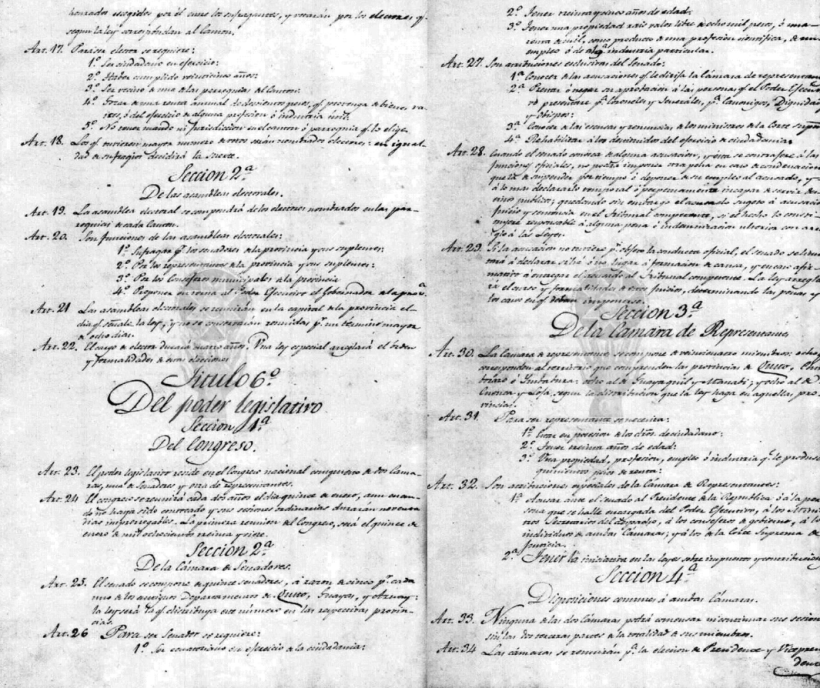 nombrados escogidos por él entre los sufragantes, y votarán por los electores q.
segun la ley correspondan al Canton.
Art. 17. Para ser elector se requiere:
1º Ser ciudadano en ejercicio:
2º Haber cumplido veinticinco años:
3º Ser vecino de una de las parroquias del Canton:
4º Gozar de una renta annual de doscientos pesos, q. provenga de bienes rai-
ces, ó del ejercicio de alguna profesion ó industria útil:
5º No tener mando ni jurisdiccion en el canton ó parroquia q. lo elige.
Art. 18. Los q. tuvieren mayor numero de votos serán nombrados electores: en igual-
dad de sufragios decidirá la suerte.
Seccion 2ª
De las asambleas electorales.
Art. 19. La asamblea electoral se compondrá de los electores nombrados en las par-
roquias de cada Canton.
Art. 20. Son funciones de las asambleas electorales:
1ª Sufragar p. los senadores de la provincia y sus suplentes:
2ª Por los representantes de la provincia y sus suplentes:
3ª Por los Consejeros municipales de la provincia
4ª Proponer en terna al Poder Ejecutivo el Gobernador de la provª.
Art. 21 Las asambleas electorales se reunirán en la capital de la provincia el
dia q. señale la ley, y no se conservarán reunidas p. un término mayor
de ocho dias.
Art. 22. El cargo de elector durará cuatro años. Una ley especial arreglará el órden
y formalidades de estas elecciones
Título 6º
Del poder legislativo
Seccion 1ª
Del Congreso.
Art. 23. El poder legislativo reside en el Congreso nacional compuesto de dos Cáma-
ras, una de Senadores y otra de representantes.
Art. 24 El congreso se reunirá cada dos años el dia quince de enero, aun cuan-
do no haya sido convocado y sus sesiones ordinarias durarán noventa
dias improrrogables. La primera reunion del Congreso, será el quince de
enero de mil ochocientos treinta y siete.
Seccion 2ª
De la Cámara de Senadores.
Art. 25. El senado se compone de quince senadores, á razon de cinco p. cada
uno de los antiguos Departamentos de Quito, Guayas, y Azuay:
la ley será la q. distribuya este número en las respectivas provin-
cias.
Art. 26 Para ser Senador se requiere:
1º Ser ecuatoriano en ejercicio de la ciudadanía:
2º Tener treinta y cinco años de edad:
3º Tener una propiedad raíz valor libre de ocho mil pesos, ó una
renta de mil, como producto de una profesion científica, de un
empleo ó de alg. industria particular.
Art. 27. Son atribuciones exclusivas del Senado:
1ª Conocer de las acusaciones q. le dirija la Cámara de representantes
2ª Prestar ó negar su aprobacion á las personas q. el Poder Ejecuti-
vo presentare p. Coroneles y Generales, p. Canonigos, Dignidades
y Obispos:
3ª Conocer de las escusas y renuncias de los ministros de la Corte Suprema
4ª Rehabilitar á los destituidos del ejercicio de ciudadanía.
Art. 28. Cuando el senado conozca de alguna acusacion, y esta se contragere á las
funciones oficiales, no podrá imponer otra pena en caso de condenacion
que la de suspender por tiempo ó deponer de su empleo al acusado, y
á lo mas declararlo temporal ó perpetuamente incapaz de servir desti-
nos publicos; quedando sin embargo el acusado sugeto á acusacion
juicio y sentencia en el Tribunal competente, si el hecho lo consti-
tuyere responsable á alguna pena ó indemnizacion ulterior con arre-
glo á las Leyes.
Art. 29. Si la acusacion no versare p. sobre la conducta oficial, el senado se limi-
tará á declarar si há ó no lugar á formacion de causa, y en caso afir-
mativo á entregar el acusado al Tribunal competente. La ley arregla-
rá el curso y formalidades de estos juicios, determinando las penas y
los casos en q. deban imponerse.
Seccion 3ª
De la Cámara de Representantes
Art. 30. La Cámara de representantes se compone de veinticuatro miembros: ocho q.
corresponden al territorio que comprenden las provincias de Quito, Chim-
borazo é Imbabura: ocho al de Guayaquil y Manabí; y ocho al de
Cuenca y Loja, segun la distribucion que la ley haga en aquellas pro-
vincias.
Art. 31 Para ser representante se necesita:
1º Estar en posesion de los dros. de ciudadano:
2º Tener treinta años de edad:
3º Una propiedad, profesion, empleo ó industria q. le produzca
quinientos pesos de renta:
Art. 32. Son atribuciones especiales de la Cámara de Representantes:
1ª Acusar ante el senado al Presidente de la República ó á la per-
sona que se halle encargada del Poder Ejecutivo, á los Minis-
tros Secretarios del despacho, á los consejeros de gobierno, á los
individuos de ambas Cámaras; y á los de la Corte Suprema de
Justicia.
2ª Tener la iniciativa en las leyes sobre impuestos y contribuciones
Seccion 4ª
Disposiciones comunes á ambas Cámaras.
Art. 33. Ninguna de las dos Cámaras podrá comenzar ni continuar sus sesiones
sin las dos terceras partes de la totalidad de sus miembros.
Art. 34 Las cámaras se reunirán p. la eleccion de Presidente y Vicepresi-
dente